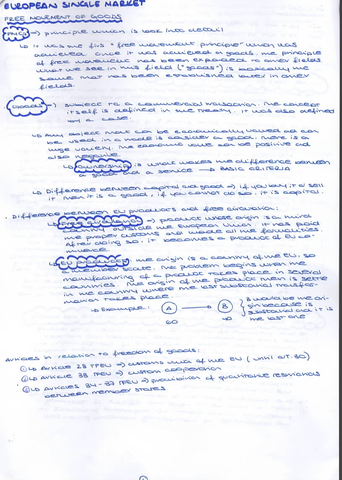 EUROPEAN SINGLE MARKET
FREE MOVEMENT OF GOODS
⇒ principle which is look into detail
↳ It was the first "free movement principle" which was
achieved. Since it was achieved in goods, the principle
of free movement has been expanded to other fields
what we see in this field ("goods") is basically the
same that has been established later in other
fields.
Goods ⇒ subject to a commercial transaction. The concept
itself is defined in the treaty, it was also defined
by a case.
↳ Any object that can be economically valued and can
be used in a trade is consider a good. There is a
huge variety. The economic value can be positive or
also negative.
↳ Ownership is what makes the difference between
a good and a service → BASIC CRITERIA
↳ Difference between capital and good ⇒ if you buy it or sell
it then it is a good, if you cannot do so, it is capital.
- Difference between EU products and free circulation:
↳ ⇒ product whose origin is a third
country, outside the European Union. It has paid
the proper customs and made all the formalities.
After doing so, it becomes a product of EU
↳ EU product: the origin is a country of the EU, so
a member state. The problem begins when the
manufacturing of a product takes place in several
countries. The origin of the product then is
in the country where the last substantial transfor-
mation takes place
↳ Example: A → B B would be the ori-
gin because is
substantial and it is
the last one
60 40
Articles in relation to freedom of goods:
① ↳ Article 28 TFEU ⇒ customs union of the EU (until art. 30)
② ↳ Article 33 TFEU ⇒ custom cooperation
③ ↳ Articles 34-37 TFEU ⇒ prohibition of quantitative restrictions
between member states